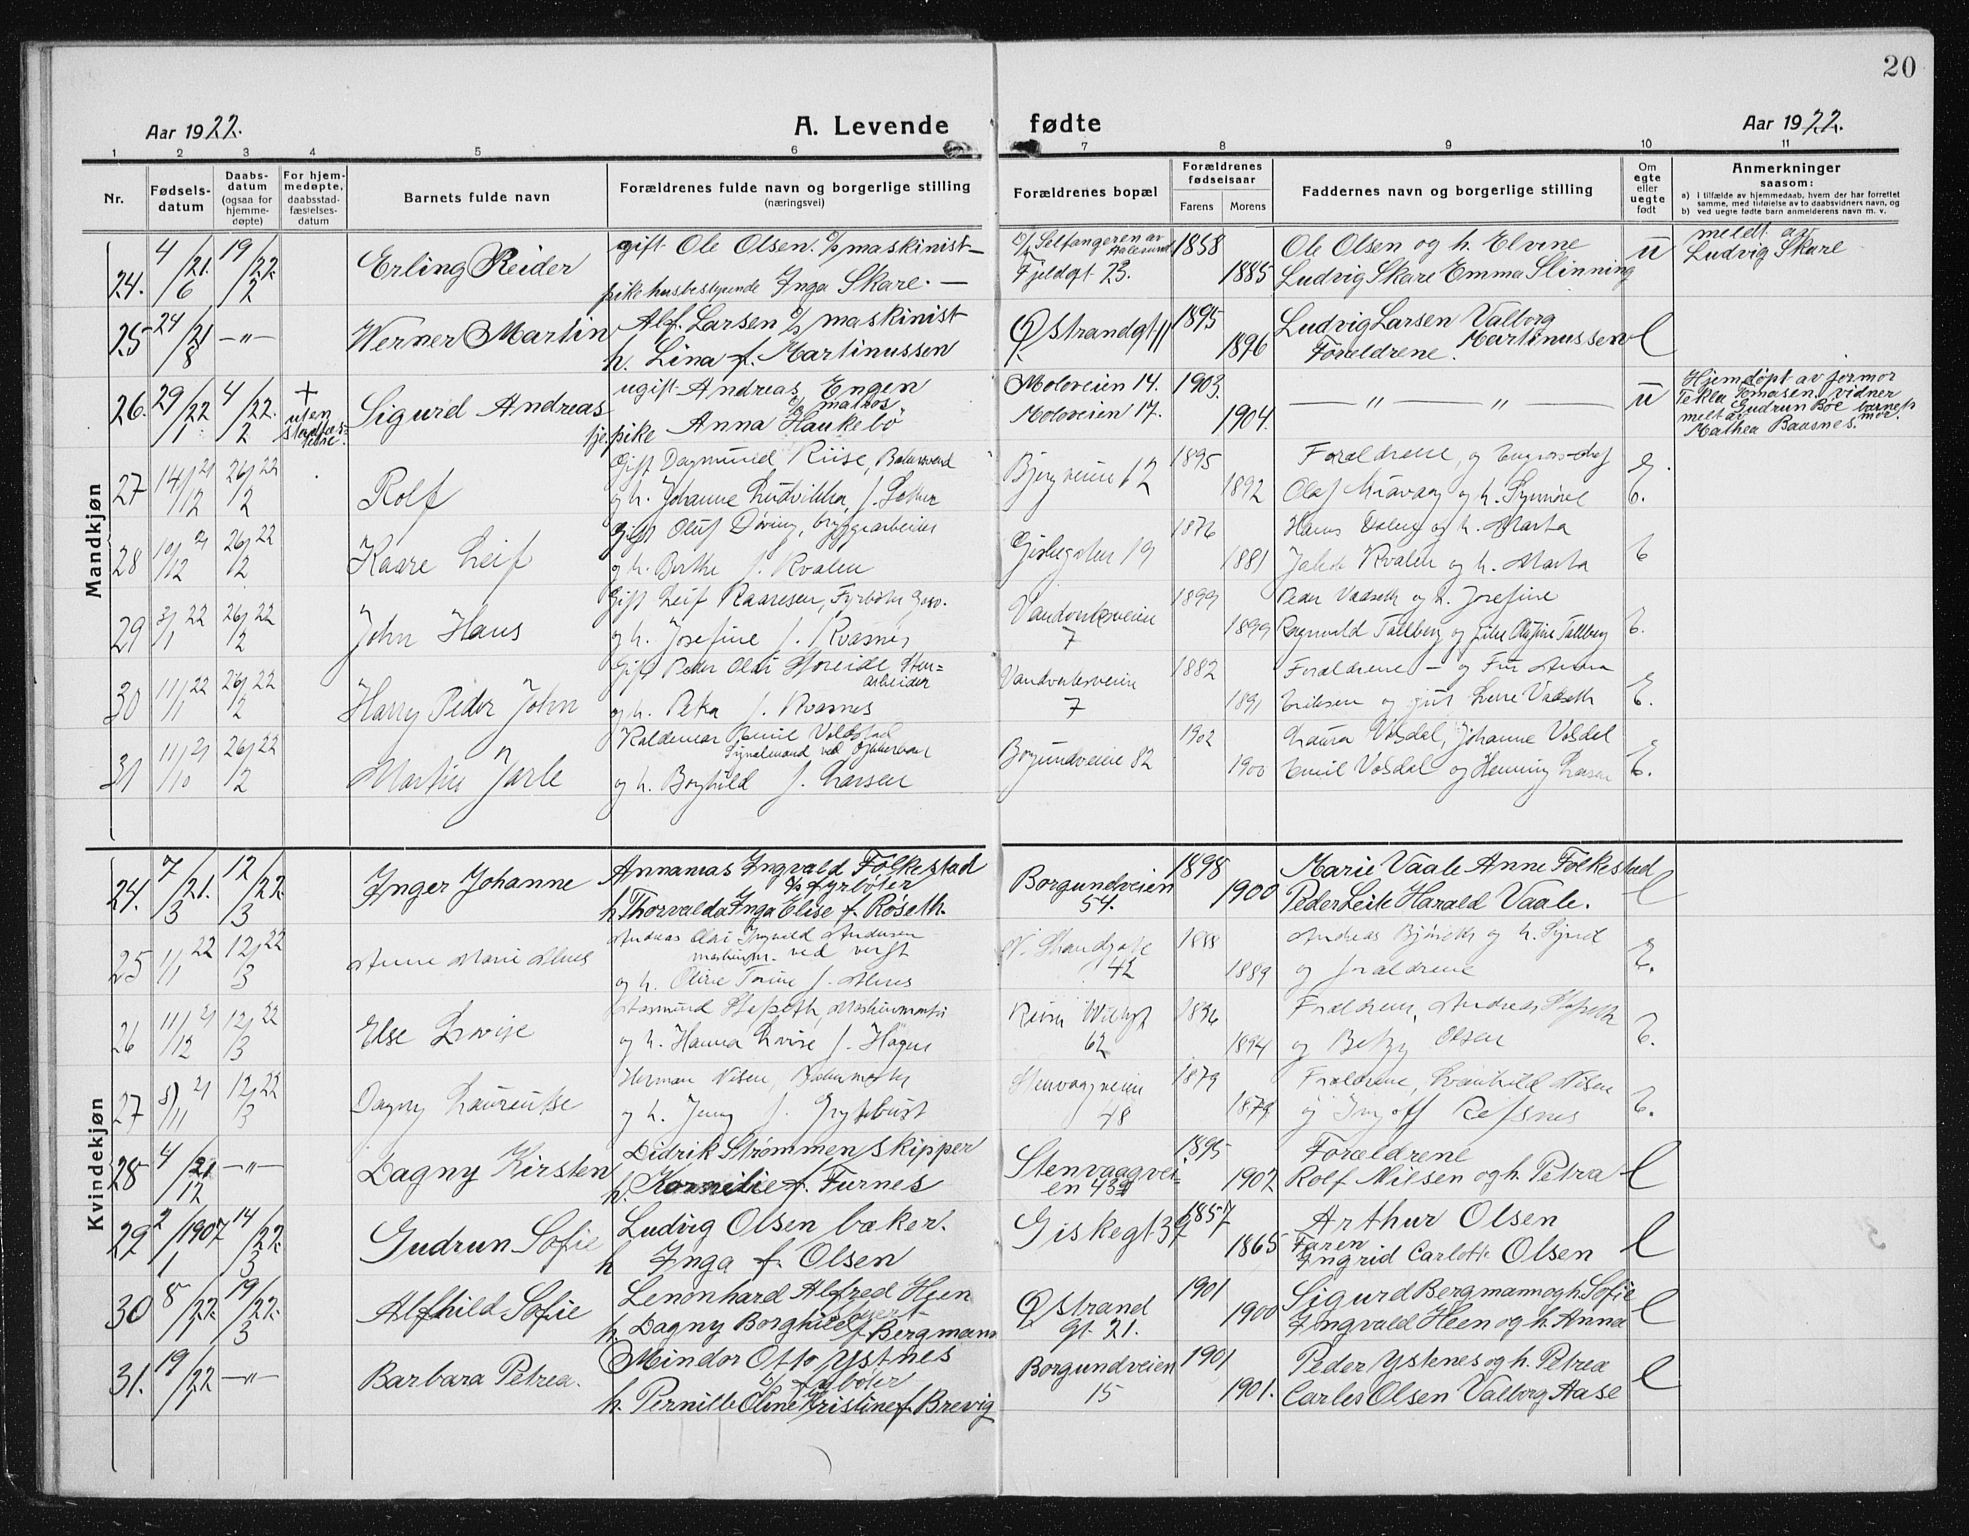 20
Aar 1922.
A. Levende fødte
Aar 1922.
1 2 3 4 5 6 7 8 9 10 11
Nr.
Fødsels-
datum
Daabs-
datum
(ogsaa for
hjemme-
døpte)
For hjem-
medøpte,
daabsstad-
fæstelses-
datum
Barnets fulde navn
Forældrenes fulde navn og borgerlige stilling
(næringsvei)
Forældrenes bopæl
Forældrenes
fødselsaar
Farens Morens
Faddernes navn og borgerlige stilling
Om
egte
eller
uegte
født
Anmerkninger
saasom:
a) i tilfælde av hjemmedaab, hvem der har forrettet
samme, med tilføielse av to daabsvidners navn, og
b) ved uegte fødte barn anmelderens navn m. v.
Mandkjøn
24. 4/6 21. 19/2 22. Erling Reider
gift Ole Olsen. maskinist
pike husbestyrende Inga Skare.
Selfangeren av Aalesund
Fjeldgt 23.
1858 1885
Ole Olsen og h. Elvine
Ludvig Skare Emma Slinning
u
meldt av
Ludvig Skare
25 24/8 21 —"— Werner Martin
Alf. Larsen maskinist
h. Lina f. Martinussen
Ø strandgt 11
1895 1896
Ludvig Larsen Valborg
Martinussen
Foreldrene.
26. 29/1 22 4/2 22. + uten stadfæstelse. Sigurd Andreas
ugift Andreas Engen
matros
tj. pike Anna Haukebö
Moloveien 14.
Moloveien 17.
1903. 1904.
—"— —"—
u
Hjemdöpt av jormor
Tekla Tomasen. vidner
Gudrun Boe barnets
mor.
Mathea Baasnes.
27 14/12 21 26/2 22 Rolf
Gift Dagmund Riise,
og h. Johanne
Bjergveien 12
1895 1892
Forældrene, og
Olaf og h.
E.
28 10/12 21 26/2 22 Kaare Leif
Gift Oluf Døving, bryggearbeider
og h. Berthe f. Kvalen
1876 1881
Hans og h. Marta
Jakob Kvalen og h. Marta
E
29 3/1 22 26/2 22 John Hans
Gift Leif Kaaresen, Fyrbøter
og h. Josefine f. Kvasnes
Vandverksveien
7
1899 1899
Peder Vadseth og h. Josefine
Ragnvald Tallberg og pike Olufine Tallberg
E.
30 11/1 22 26/2 22 Harry Peder John
Gift Peder Olai
arbeider
og h. Petra f. Kvasnes
Vandverksveien
7
1882 1891
Forældrene — og Fru Anna
Eriksen og Vadseth
E.
31 11/10 21 26/2 22 Martin Jarle
Valdemar Emil
Signalmand ved
og h. Borghild f. Larsen
Borgundveien 82
1902 1900
Laura Vosdal, Johanne Vosdal
Emil Vosdal og Henning Larsen
E.
Kvindekjøn
24. 7/3 21. 12/3 22. Inger Johanne
Annanias Ingvald Folkestad
fyrböter
h Thorvalda Inga Elise f. Röseth.
Borgundveien
54.
1898 1900
Marie Vaale Anne Folkestad
Peder Leite Harald Vaale.
25 11/1 22 12/3 22 Anne Marie Alnes
Andreas Olai Ingvald Andersen
ved verft
og h. Oline f. Alnes
N. Strandgate
42
1888 1889
Andreas og h.
og forældrene
E.
26 11/12 21 12/3 22 Else Lovise
Aasmund
og h. Hanna Lovise f. Hagen
62
1896 1894
Forældrene, Andreas
og Betzy Olsen
E.
27 5/11 21 12/3 22 Dagny Laurentse
Herman Nilsen,
og h. Jenny f.
Stenvaagveien
48
1879 1879
Forældrene, Svanhild Nilsen
og Refsnes
E.
28 4/12 21 —"— Dagny Kirsten
Didrik Strömmen skipper
h. Kornelie f. Furnes
Stenvaagvei-
en 43a
1895 1902
Forældrene
Rolf Nilsen og h. Petra
29 2/1 1907 14/3 22. Gudrun Sofie
Ludvig Olsen baker.
h Inga f. Olsen
Giskegt 39
1857 1865
Arthur Olsen
Faren
Ingrid Carlotte Olsen
30 8/1 22. 19/3 22. Alfhild Sofie
Lenonhard Alfred Heen
h. Dagny Borghild f. Bergmann
Ø strand
gt. 21.
1901 1900
Sigurd Bergmann og h. Sofie
Ingvald Heen og h. Anna
31. 19/1 22 —"— Barbara Petrea.
Mindor Otto Ystnes
fyrböter
h. Pernille Oline Kristine f. Brevig
Borgundveien
15
1901 1901.
Peder Ystenes og h. Petrea
Carles Olsen Valborg Aase